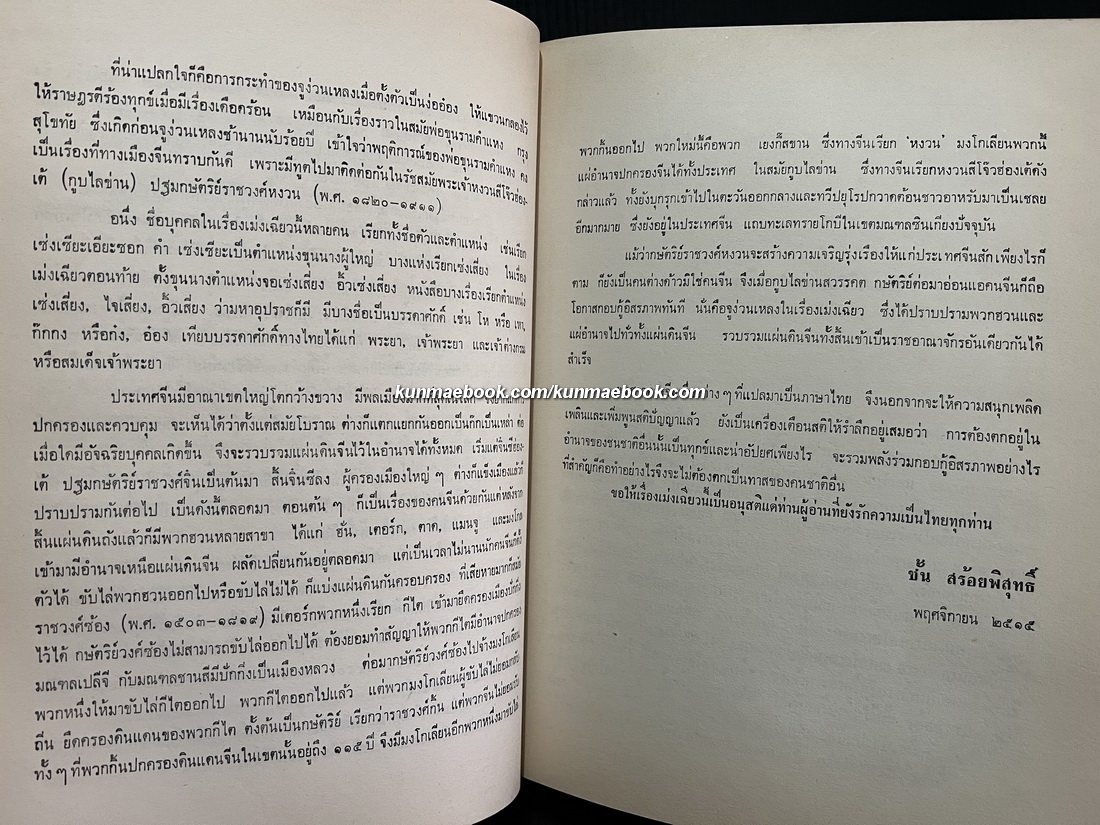 ที่น่าแปลกใจก็คือการกระทำของจูง่วนเหลงเมื่อตั้งตัวเป็นง่อฮ๋อง ให้แขวนกลองไว้
ให้ราษฎรตีร้องทุกข์เมื่อมีเรื่องเดือดร้อน เหมือนกับเรื่องราวในสมัยพ่อขุนรามคำแหง กรุง
สุโขทัย ซึ่งเกิดก่อนจูง่วนเหลงช้านานนับร้อยปี เข้าใจว่าพฤติการณ์ของพ่อขุนรามคำแหง คง
เป็นเรื่องที่ทางเมืองจีนทราบกันดี เพราะมีทูตไปมาติดต่อกันในรัชสมัยพระเจ้าหงวนสีโจ๊วฮ่อง-
เต้ (กูบไลข่าน) ปฐมกษัตริย์ราชวงศ์หงวน (พ.ศ. ๑๘๒๐-๑๙๑๑)
อนึ่ง ชื่อบุคคลในเรื่องเม่งเฉียวนี้หลายคน เรียกทั้งชื่อตัวและตำแหน่ง เช่นเรียก
เซ่งเซียะเอียะซอก คำ เซ่งเซียะเป็นตำแหน่งขุนนางผู้ใหญ่ บางแห่งเรียกเซ่งเสี่ยง ในเรื่อง
เม่งเฉียวตอนท้าย ตั้งขุนนางตำแหน่งจอเซ่งเสี่ยง อิ้วเซ่งเสี่ยง หนังสือบางเรื่องเรียกตำแหน่ง
เซ่งเสี่ยง, ไจเสี่ยง, อิ้วเสี่ยง ว่ามหาอุปราชก็มี มีบางชื่อเป็นบรรดาศักดิ์ เช่น โห หรือ เหา,
ก๊กกง หรือก๋ง, อ๋อง เทียบบรรดาศักดิ์ทางไทยได้แก่ พระยา, เจ้าพระยา และเจ้าต่างกรม
หรือสมเด็จเจ้าพระยา
ประเทศจีนมีอาณาเขตใหญ่โตกว้างขวาง มีพลเมือง
ปกครองและควบคุม จะเห็นได้ว่าตั้งแต่สมัยโบราณ ต่างก็แตกแยกกันออกเป็นก๊กเป็นเหล่า ต่อ
เมื่อใดมีอัจฉริยบุคคลเกิดขึ้น จึงจะรวบรวมแผ่นดินจีนไว้ในอำนาจได้ทั้งหมด เริ่มแต่จิ๋นซีฮ่อง-
เต้ ปฐมกษัตริย์ราชวงศ์จิ๋นเป็นต้นมา สิ้นจิ๋นซีลง ผู้ครองเมืองใหญ่ ๆ ต่างก็แข็งเมืองแล้วก็
ปราบปรามกันต่อไป เป็นดังนี้ตลอดมา ตอนต้น ๆ ก็เป็นเรื่องของคนจีนด้วยกันแต่หลังจาก
สิ้นแผ่นดินถังแล้วก็มีพวกฮวนหลายสาขา ได้แก่ ฮั่น, เตอร์ก, ตาด, แมนจู และมงโกล
เข้ามามีอำนาจเหนือแผ่นดินจีน ผลัดเปลี่ยนกันอยู่ตลอดมา แต่เป็นเวลาไม่นานนักคนจีนก็ตั้ง
ตัวได้ ขับไล่พวกฮวนออกไปหรือขับไล่ไม่ได้ ก็แบ่งแผ่นดินกันครอบครอง ที่เสียหายมากก็สมัย
ราชวงศ์ซ้อง (พ.ศ. ๑๕๐๓-๑๘๑๙) มีเตอร์กพวกหนึ่งเรียก กีไต เข้ามายึดครองเมืองปักกิ่ง
ไว้ได้ กษัตริย์วงศ์ซ้องไม่สามารถขับไล่ออกไปได้ ต้องยอมทำสัญญาให้พวกกีไตมีอำนาจปกครอง
มณฑลเปลีจี กับมณฑลซานสีมีปักกิ่งเป็นเมืองหลวง ต่อมากษัตริย์วงศ์ซ้องไปจ้างมงโกเลียน
พวกหนึ่งให้มาขับไล่กีไตออกไป พวกกีไตออกไปแล้ว แต่พวกมงโกเลียนผู้ขับไล่ไม่ยอมกลับ
ถิ่น ยึดครองดินแดนของพวกกีไต ตั้งตนเป็นกษัตริย์ เรียกว่าราชวงศ์กิ้น แต่พวกจีนไม่ยอมรับ
ทั้ง ๆ ที่พวกกิ้นปกครองดินแดนจีนในเขตนั้นอยู่ถึง ๑๑๕ ปี จึงมีมงโกเลียนอีกพวกหนึ่งมาขับไล่
พวกกิ้นออกไป พวกใหม่นี้คือพวก เยงกีสขาน ซึ่งทางจีนเรียก 'หงวน' มงโกเลียนพวกนี้
แผ่อำนาจปกครองจีนได้ทั้งประเทศ ในสมัยกูบไลข่าน ซึ่งทางจีนเรียกหงวนสีโจ๊วฮ่องเต้ดัง
กล่าวแล้ว ทั้งยังบุกรุกเข้าไปในตะวันออกกลางและทวีปยุโรปกวาดต้อนชาวอาหรับมาเป็นเชลย
อีกมากมาย ซึ่งยังอยู่ในประเทศจีน แถบทะเลทรายโกบีในเขตมณฑลซินเกียงปัจจุบัน
แม้ว่ากษัตริย์ราชวงศ์หงวนจะสร้างความเจริญรุ่งเรืองให้แก่ประเทศจีนสักเพียงไรก็
ตาม ก็ยังเป็นคนต่างด้าวมิใช่คนจีน จึงเมื่อกูบไลข่านสวรรคต กษัตริย์ต่อมาอ่อนแอคนจีนก็ถือ
โอกาสกอบกู้อิสรภาพทันที นั่นคือจูง่วนเหลงในเรื่องเม่งเฉียว ซึ่งได้ปราบปรามพวกฮวนและ
แผ่อำนาจไปทั่วทั้งแผ่นดินจีน รวบรวมแผ่นดินจีนทั้งสิ้นเข้าเป็นราชอาณาจักรอันเดียวกันได้
สำเร็จ
kunmaebook.com/kunmaebook.com
ต่าง ๆ ที่แปลมาเป็นภาษาไทย จึงนอกจากจะให้ความสนุกเพลิด
เพลินและเพิ่มพูนสติปัญญาแล้ว ยังเป็นเครื่องเตือนสติให้รำลึกอยู่เสมอว่า การต้องตกอยู่ใน
อำนาจของชนชาติอื่นนั้นเป็นทุกข์และน่าอัปยศเพียงไร จะรวมพลังร่วมกอบกู้อิสรภาพอย่างไร
ที่สำคัญก็คือทำอย่างไรจึงจะไม่ต้องตกเป็นทาสของคนชาติอื่น
ขอให้เรื่องเม่งเฉียวนี้เป็นอนุสติแด่ท่านผู้อ่านที่ยังรักความเป็นไทยทุกท่าน
ชั้น สร้อยพิสุทธิ์
พฤศจิกายน ๒๕๑๕